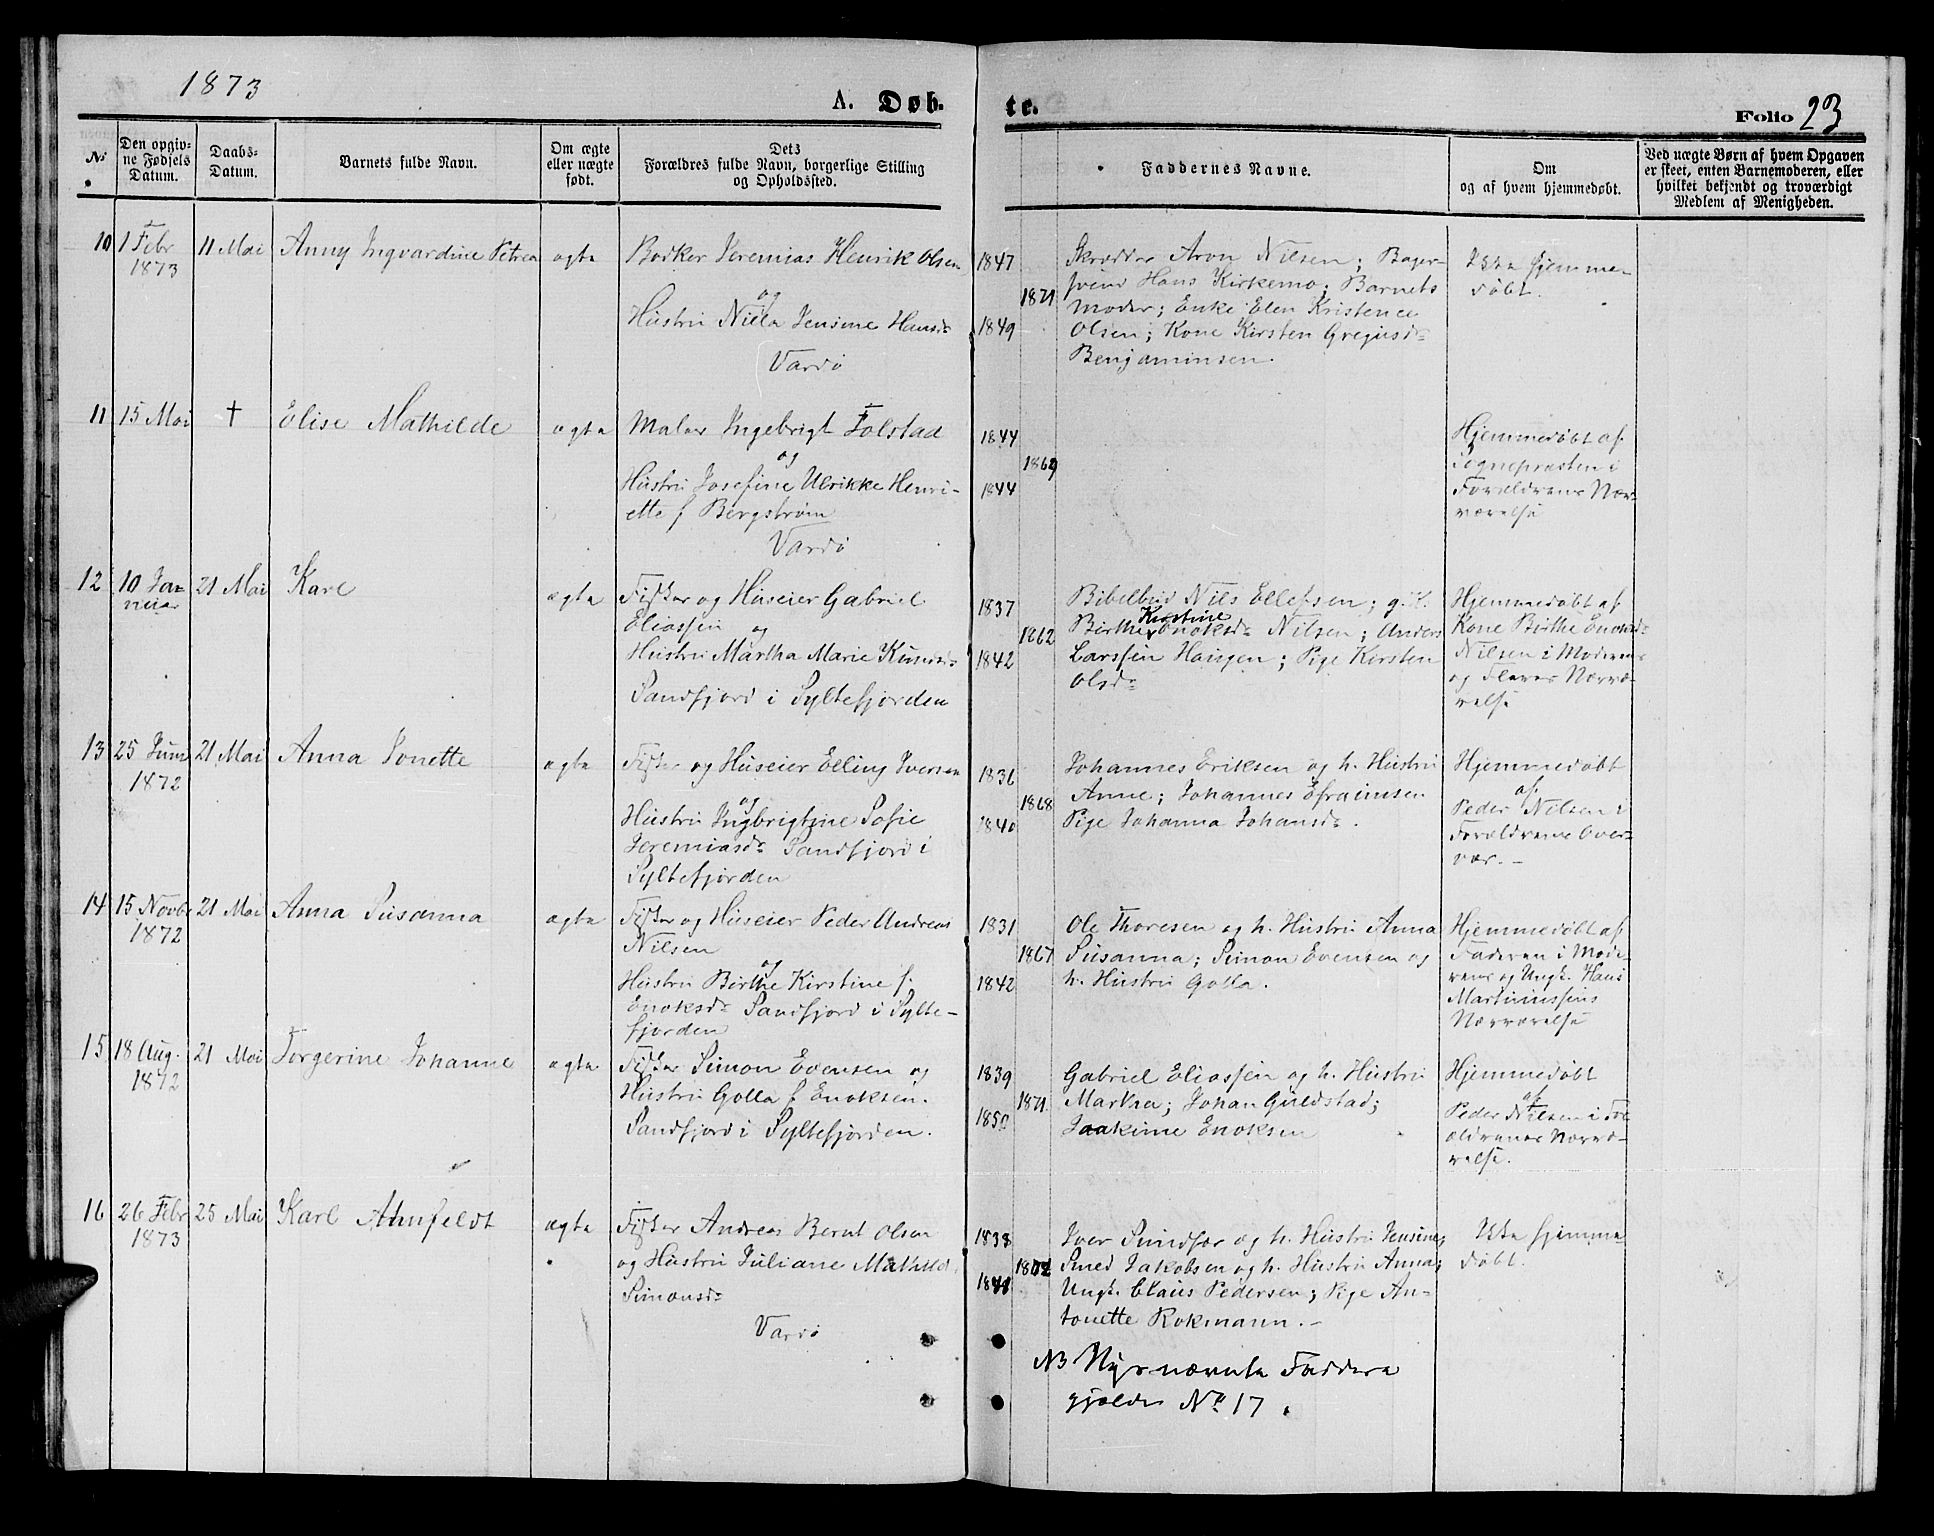 1873
A. Døb-
te.
Folio 23
No.
Den opgiv-
ne Fødsels
Datum.
Daabs-
Datum.
Barnets fulde Navn.
Om ægte
eller uægte
født.
Dets
Forældres fulde Navn, borgerlige Stilling
og Opholdssted.
Faddernes Navne.
Om
og af hvem hjemmedøbt.
Ved uægte Børn af hvem Opgaven
er skeet, enten Barnemoderen, eller
hvilket bekjendt og troværdigt
Medlem af Menigheden.
10
1 Febr
1873
11 Mai
Anny Ingvardine Petrea
ægte
Bødker Jeremias Henrik Olsen
og
Hustru Nilla Jensine Hansdr
Vardø
1847
1871
1849
Skrædder Aron Nilsen; Bager-
svend Hans Kirkemo; Barnets
Moder; Enke Elen Kristence
Olsen; Kone Kirsten Gregusdr
Benjaminsen.
Ikke hjemme-
døbt.
11
15 Mai
†
Elise Mathilde
ægte
Maler Ingebrigt Folstad
og
Hustru Josefine Ulrikke Henri-
ette f Bergstrøm
Vardø
1844
1869
1844
Hjemmedøbt af
Sognepræsten i
Forældrenes Nær-
værelse
12
10 Jan-
uar
21 Mai
Karl
ægte
Fisker og Huseier Gabriel
Eliassen
og
Hustru Martha Marie
Sandfjord i Syltefjorden
1837
1862
1842
Bibelbud Nils Ellefsen; g. K.
Birthe Kirstine Enoksdr Nilsen; Anders
Larssen Haugen; Pige Kirsten
Olsdr
Hjemmedøbt af
Kone Birthe Enoksdr
Nilsen i Moderens
og Fleres Nærvæ-
relse
13
25 Juni
1872
21 Mai
Anna Jonette
ægte
Fisker og Huseier Elling Iversen
og
Hustru Ingbrigtine Sofie
Jeremiasdr Sandfjord i
Syltefjorden
1836
1868
1840
Johannes Eriksen og h. Hustru
Anne; Johannes Efraimsen
Pige Johanna Johansdr.
Hjemmedøbt
af
Peder Nilsen i
Forældrenes Over-
vær.-
14
15 Novbr
1872
21 Mai
Anna Susanna
ægte
Fisker og Huseier Peder Andreas
Nilsen
og
Hustru Birthe Kirstine f.
Enoksdr Sandfjord i Sylte-
fjorden
1831
1867
1842
Ole Thoresen og h. Hustru Anna
Susanna; Simon Evensen og
h. Hustru Golla.
Hjemmedøbt af
Faderen i Mode-
rens og Ungk. Hans
Martinussens
Nærværelse
15
18 Aug.
1872
21 Mai
Torgerine Johanne
ægte
Fisker Simon Evensen og
Hustru Golla f Enoksen.
Sandfjord i Syltefjorden.
1839
1871
1850
Gabriel Eliassen og h. Hustru
Marka; Johan Guldstad;
Joakime Enoksen
Hjemmedøbt
af
Peder Nilsen i For-
ældrenes Nærvæ-
relse.
16
26 Febr
1873
25 Mai
Karl Arnfeldt
ægte
Fisker Andreas Bernt Olsen
og Hustru Juliane Mathild.
Simonsdr
Vardø
1838
1872
Iver Sundfær og h. Hustru Jensine;
Smed Jakobsen og h. Hustru Anna;
Ungk. Claus Pedersen; Pige An-
tonette Rokmann.-
Ikke hjemme-
døbt.
NB Nysnævnte Faddere
gjælder No 17.